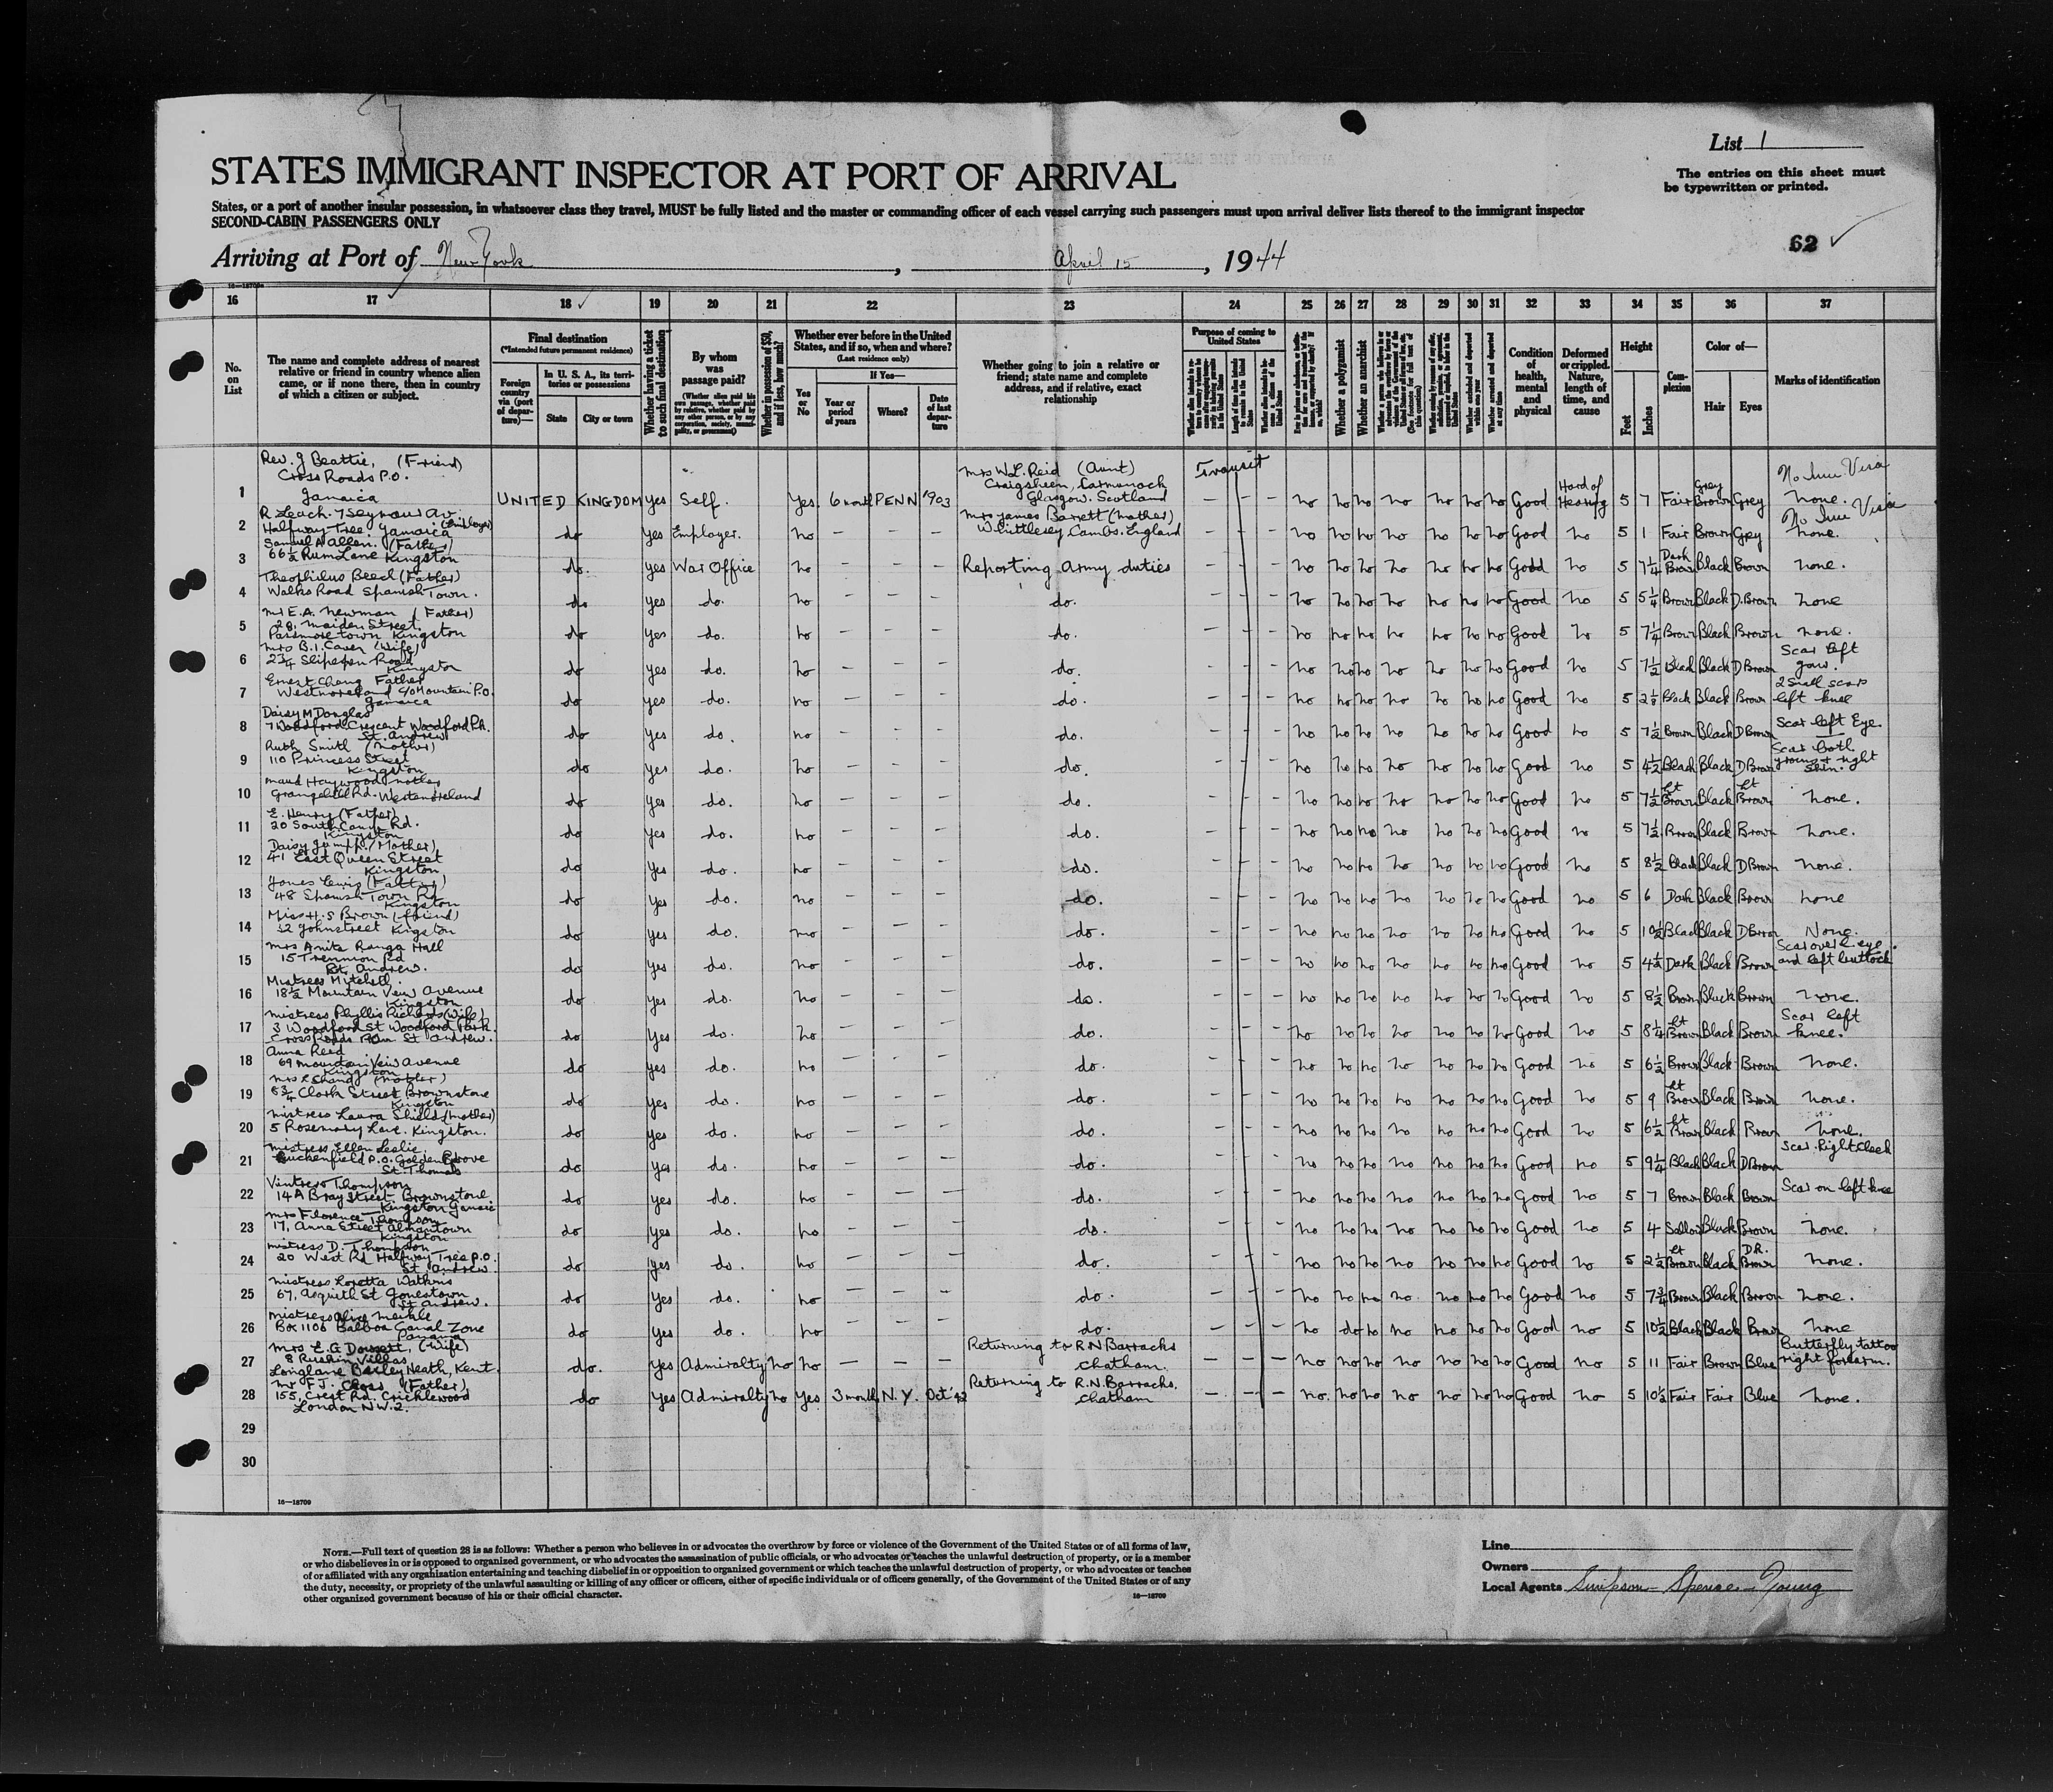 List 1
The entries on this sheet must
be typewritten or printed.
STATES IMMIGRANT INSPECTOR AT PORT OF ARRIVAL
States, or a port of another insular possession, in whatsoever class they travel, MUST be fully listed and the master or commanding officer of each vessel carrying such passengers must upon arrival deliver lists thereof to the immigrant inspector
SECOND-CABIN PASSENGERS ONLY
62
Arriving at Port of New York, April 15, 1944
16—18709
16 17 18 19 20 21 22 23 24 25 26 27 28 29 30 31 32 33 34 35 36 37
No. on List
The name and complete address of nearest relative or friend in country whence alien came, or if none there, then in country of which a citizen or subject.
Final destination
(*Intended future permanent residence)
Foreign country via (port of departure)—
In U. S. A., its territories or possessions
State
City or town
Whether having a ticket to such final destination
By whom was passage paid?
(Whether alien paid his own passage, whether paid by relative, whether paid by any other person, or by any corporation, society, municipality, or government)
Whether in possession of $50, and if less, how much?
Whether ever before in the United States, and if so, when and where?
(Last residence only)
Yes or No
If Yes—
Year or period of years
Where?
Date of last departure
Whether going to join a relative or friend; state name and complete address, and if relative, exact relationship
Purpose of coming to United States
Whether a polygamist
Whether an anarchist
Condition of health, mental and physical
Deformed or crippled. Nature, length of time, and cause
Height
Feet
Inches
Complexion
Color of—
Hair
Eyes
Marks of identification
Transit
1 Rev. J Beattie, (Friend) Cross Roads P.O. Jamaica UNITED KINGDOM Yes Self. Yes. 6 month PENN 1903 Mrs W.L. Reid (Aunt) Craigsheen, Carmunock Glasgow. Scotland — — — no no no no no no no Good Hard of Hearing 5 7 Fair Grey Brown Grey No Imm Visa none.
2 R Leach. 7 Seymour Av. Halfway Tree Jamaica (Employer) do Yes Employer. no — — — Mrs James Barrett (Mother) Whittlesey Cambs. England — — — no no no no no no no Good no 5 1 Fair Brown Grey No Imm Visa none.
3 Samuel A Allen. (Father) 66½ Rum Lane Kingston do. yes War Office no — — — Reporting Army duties — — — no no no no no no no Good no 5 7¼ Dark Brown Black Brown none.
4 Theophilus Beech (Father) Walks Road Spanish Town. do yes do. no — — — do. — — — no no no no no no no Good no 5 5¼ Brown Black D.Brown none
5 Mr E.A. Newman (Father) 28, Maiden Street. Passmore town Kingston do yes do. no — — — do. — — — no no no no no no no Good no 5 7¼ Brown Black Brown none.
6 Mrs B.I. Caver (Wife) 23¼ Slipepen Road Kingston do yes do. no — — — do. — — — no no no no no no no Good no 5 7½ Black Black D Brown Scar left jaw.
7 Ernest Chang Father Westmoreland c/o Mountain P.O. Jamaica do yes do. no — — — do. — — — no no no no no no no Good no 5 2⅛ Black Black Brown 2 small scars left knee
8 Daisy M Douglas 7 Woodford Crescent Woodford Pk. St. Andrew do Yes do. no — — — do. — — — no no no no no no no Good no 5 7½ Brown Black D Brown Scar left Eye.
9 Ruth Smith (Mother) 110 Princess Street Kingston do Yes do. no — — — do. — — — no no no no no no no Good no 5 4½ Black Black D Brown Scar both right shin.
10 Maud Haywood mother Grangehill Rd. Westmoreland do Yes do. no — — — do. — — — no no no no no no no Good no 5 7½ Lt Brown Black Lt Brown none.
11 E. Henry (Father) 20 South Camp Rd. Kingston do Yes do. no — — — do. — — — no no no no no no no Good no 5 7½ Brown Black Brown none.
12 Daisy (Mother) 41 East Queen Street Kingston do Yes do. no — — — do. — — — no no no no no no no Good no 5 8½ Black Black D Brown none.
13 James Lewis (Father) 48 Spanish Town Rd Kingston do Yes do. no — — — do. — — — no no no no no no no Good no 5 6 Dark Black Brown none
14 Miss H.S Brown (friend) 52 Johnstreet Kingston do Yes do. no — — — do. — — — no no no no no no no Good no 5 10½ Black Black D Brown None.
15 Mrs Anita Ranga Hall 15 Rd St. Andrew. do Yes do. no — — — do. — — — no no no no no no no Good no 5 4½ Dark Black Brown Scar over L. eye. and left buttock
16 Mistress Mitchell 18½ Mountain View Avenue Kingston do Yes do. no — — — do. — — — no no no no no no no Good no 5 8½ Brown Black Brown none.
17 Mistress Phyllis Richards (Wife) 3 Woodford St Woodford Park. Cross Roads St Andrew. do Yes do. no — — — do. — — — no no no no no no no Good no 5 8¼ Lt Brown Black Brown Scar left knee.
18 Anna Reed 69 Mountain View Avenue Kingston do Yes do. no — — — do. — — — no no no no no no no Good no 5 6½ Brown Black Brown none.
19 Mrs R Shand (mother) 8¾ Clark Street Brownstone Kingston do Yes do. no — — — do. — — — no no no no no no no Good no 5 9 Lt Brown Black Brown none.
20 Mistress Laura Shield (mother) 5 Rosemary Lane. Kingston. do Yes do. no — — — do. — — — no no no no no no no Good no 5 6½ Lt Brown Black Brown none.
21 Mistress Ellen Leslie Duckenfield P.O. Golden Grove St. Thomas do Yes do. no — — — do. — — — no no no no no no no Good no 5 9¼ Black Black D Brown Scar. Right Cheek
22 Ventress Thompson 14A Bray Street. Brownstone. Kingston Jamaica do Yes do. no — — — do. — — — no no no no no no no Good no 5 7 Brown Black Brown Scar on left knee
23 Mrs Florence Thompson 17, Anna Street Almantown Kingston do Yes do. no — — — do. — — — no no no no no no no Good no 5 4 Sallow Black Brown none.
24 Mistress D. Thompson 20 West Rd Halfway Tree P.O. St. Andrew. do Yes do. no — — — do. — — — no no no no no no no Good no 5 2½ Lt Brown Black DR. Brown none.
25 Mistress Loretta Watkins 67, Asquith St Jonestown St Andrew. do Yes do. no — — — do. — — — no no no no no no no Good no 5 7¾ Brown Black Brown none.
26 Mistress Olive Meikle Box 1106 Balboa Canal Zone Panama do Yes do. no — — — do. — — — no do no no no no no Good no 5 10½ Black Black Brown none
27 Mrs E.G Dowsett, (Wife) 8 Ruskin Villas Longlane Bexley Heath, Kent. do. Yes Admiralty no no — — — Returning to R N Barracks Chatham. — — — no no no no no no no Good no 5 11 Fair Brown Blue Butterfly tattoo right forearm.
28 Mr F.J. Cross (Father) 155, Crest Rd, Cricklewood London N.W.2. do Yes Admiralty no Yes 3 month N.Y. Oct '42 Returning to R.N. Barracks. Chatham — — — no. no no no no no no Good no 5 10½ Fair Fair Blue none.
29
30
16—18709
NOTE.—Full text of question 28 is as follows: Whether a person who believes in or advocates the overthrow by force or violence of the Government of the United States or of all forms of law,
or who disbelieves in or is opposed to organized government, or who advocates the assassination of public officials, or who advocates or teaches the unlawful destruction of property, or is a member
of or affiliated with any organization entertaining and teaching disbelief in or opposition to organized government or which teaches the unlawful destruction of property, or who advocates or teaches
the duty, necessity, or propriety of the unlawful assaulting or killing of any officer or officers, either of specific individuals or of officers generally, of the Government of the United States or of any
other organized government because of his or their official character.
16—18709
Line
Owners
Local Agents Simpson - Spence - Young